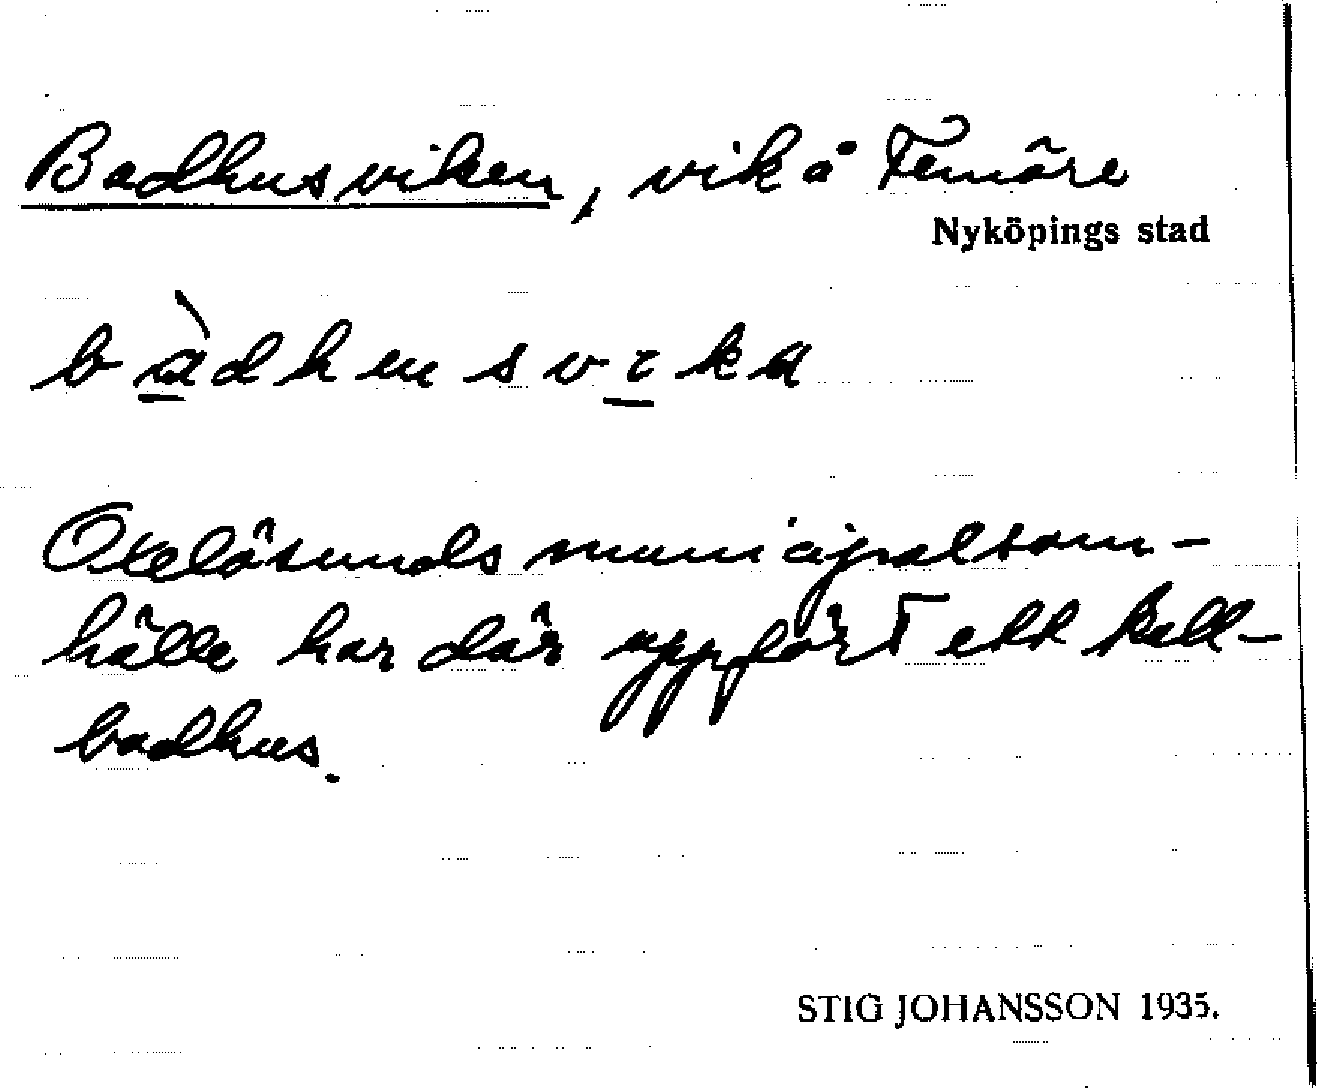 Badhusviken, vik å Femöre
Nyköpings stad
bàdhusvika
Oxelösunds municipalsam-
hälle har där uppfört ett kall-
badhus.
STIG JOHANSSON 1935.